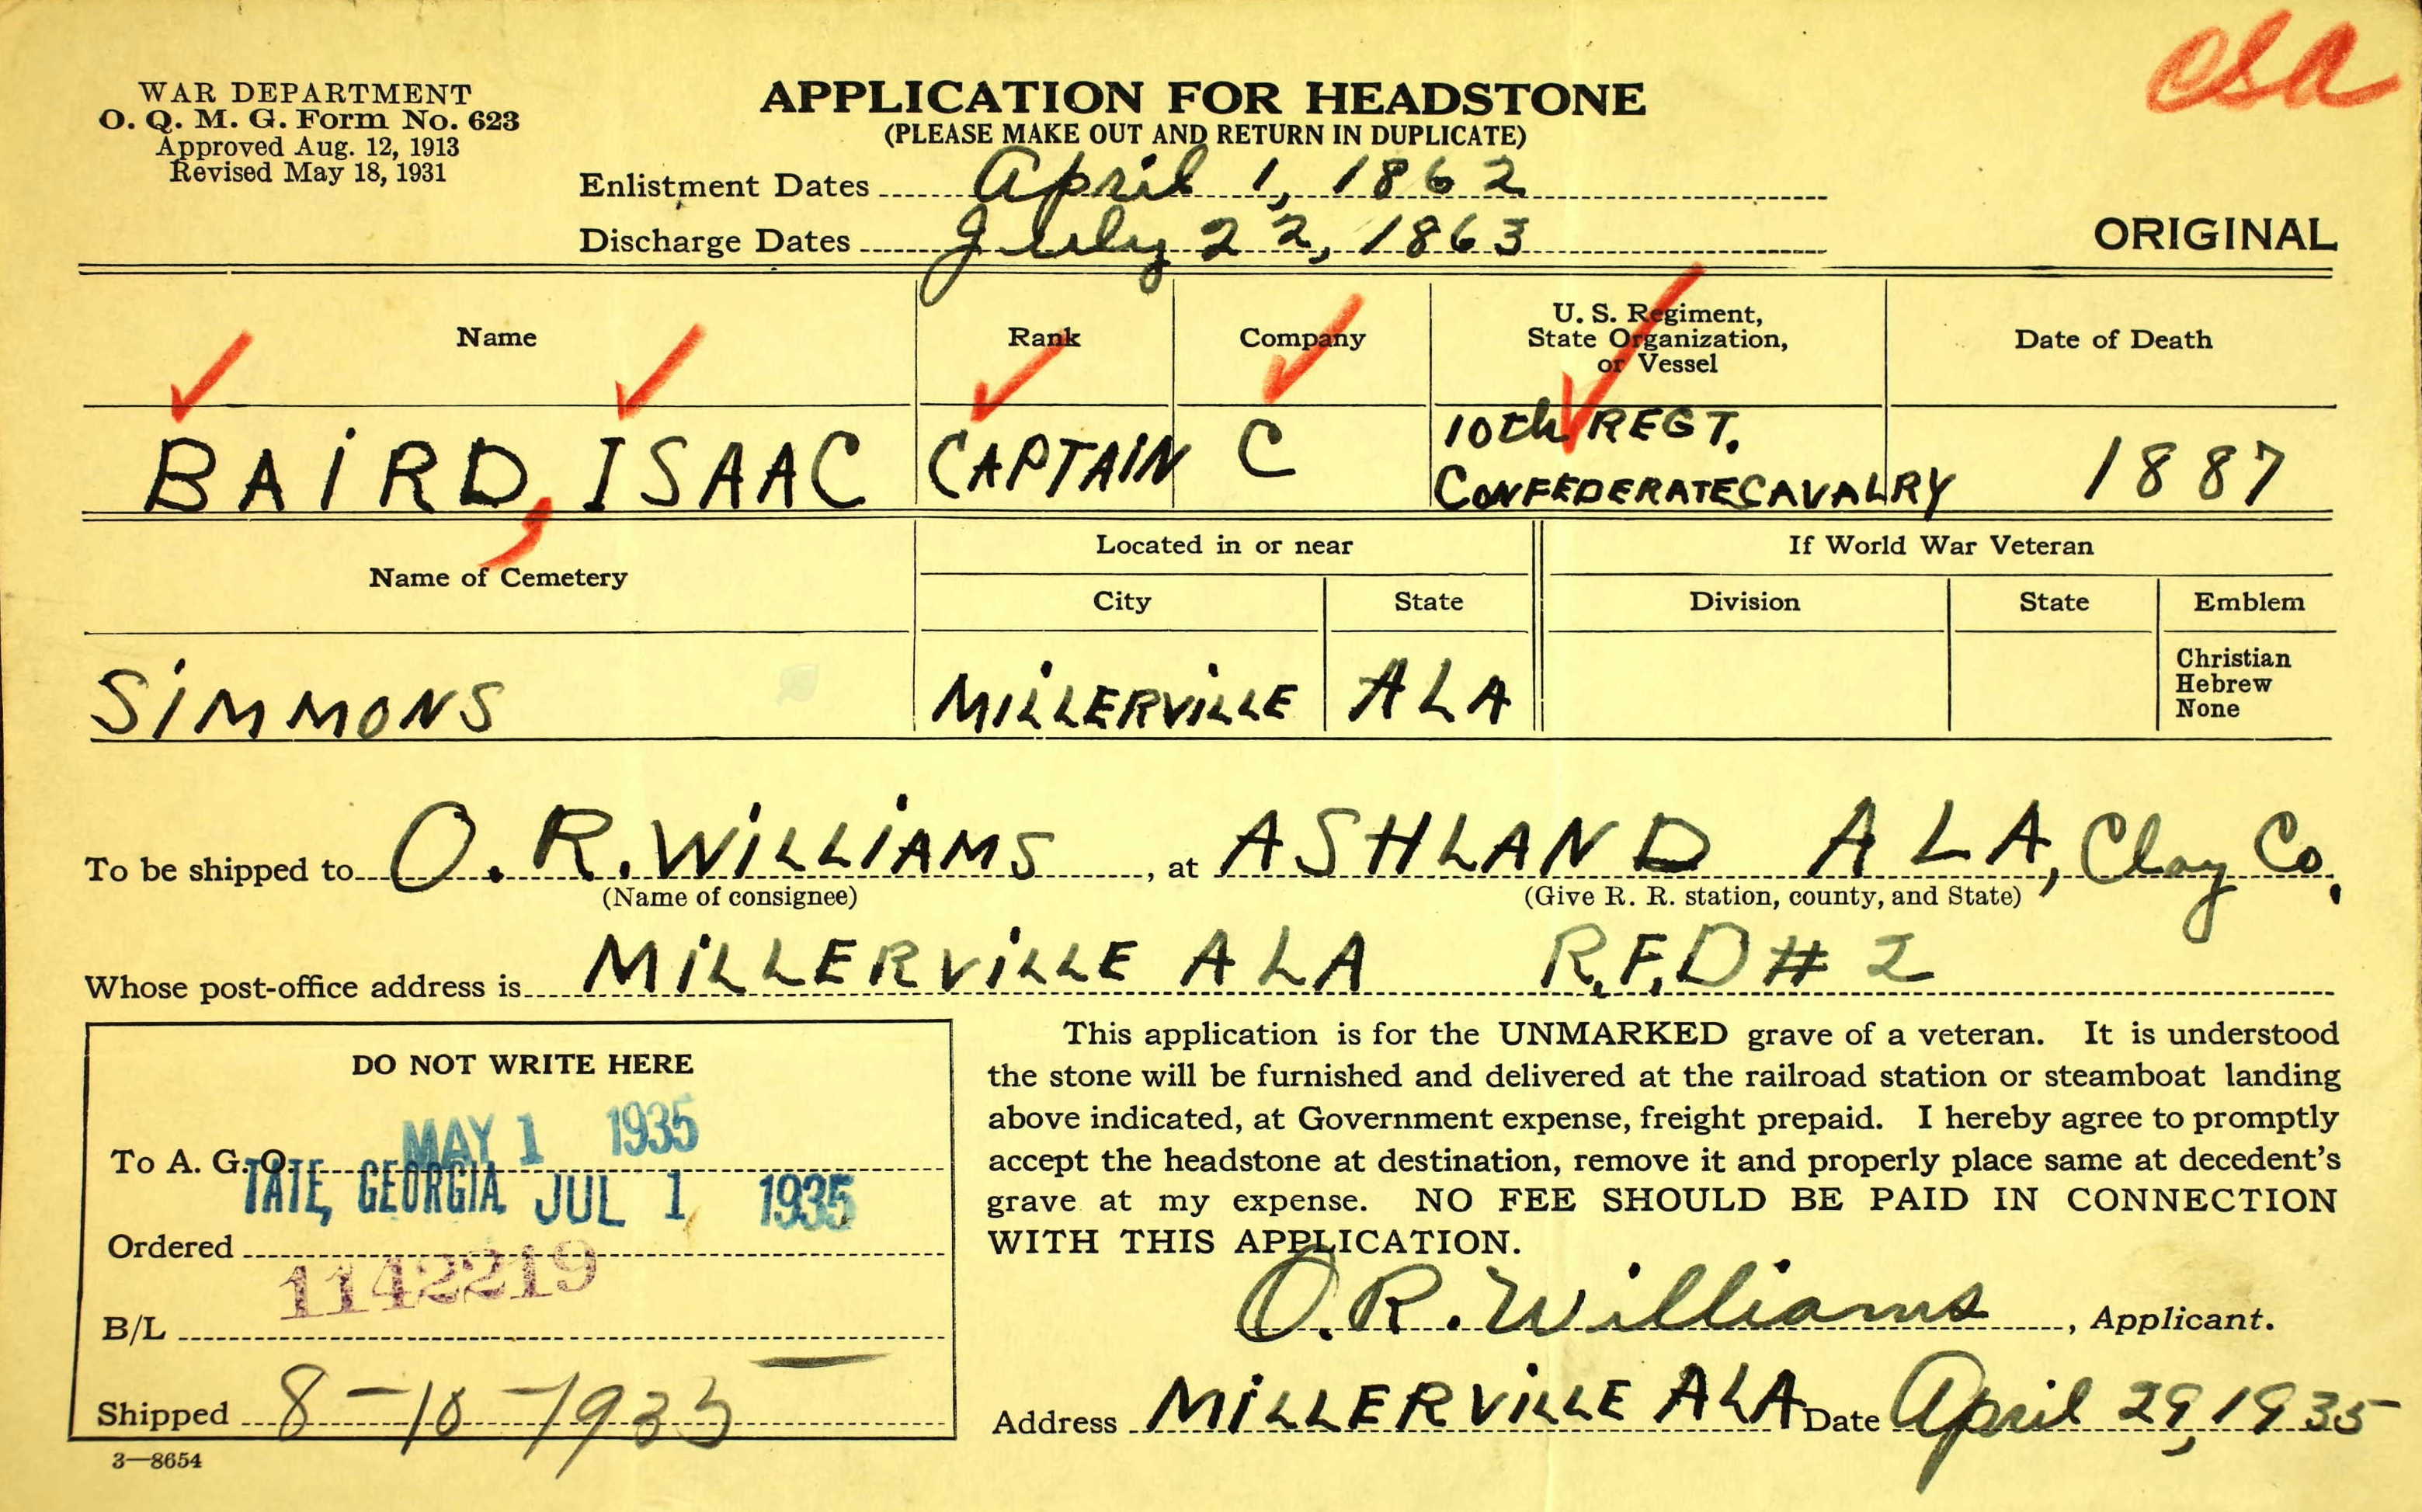 CSA
WAR DEPARTMENT
O. Q. M. G. Form No. 623
Approved Aug. 12, 1913
Revised May 18, 1931
APPLICATION FOR HEADSTONE
(PLEASE MAKE OUT AND RETURN IN DUPLICATE)
Enlistment Dates April 1, 1862
Discharge Dates July 22, 1863
ORIGINAL
Name Rank Company U. S. Regiment, State Organization, or Vessel Date of Death
BAIRD, ISAAC CAPTAIN C 10th REGT. CONFEDERATE CAVALRY 1887
Name of Cemetery Located in or near If World War Veteran
City State Division State Emblem
SIMMONS MILLERVILLE ALA
Christian
Hebrew
None
To be shipped to O. R. WILLIAMS, at ASHLAND ALA, Clay Co.
(Name of consignee) (Give R. R. station, county, and State)
Whose post-office address is MILLERVILLE ALA R.F.D # 2
DO NOT WRITE HERE
To A. G. O. MAY 1 1935
TATE, GEORGIA. JUL 1 1935
Ordered
1142219
B/L
Shipped 8-10-1935
3—8654
This application is for the UNMARKED grave of a veteran. It is understood
the stone will be furnished and delivered at the railroad station or steamboat landing
above indicated, at Government expense, freight prepaid. I hereby agree to promptly
accept the headstone at destination, remove it and properly place same at decedent's
grave at my expense. NO FEE SHOULD BE PAID IN CONNECTION
WITH THIS APPLICATION.
O.R. Williams, Applicant.
Address MILLERVILLE ALA Date April 29, 1935